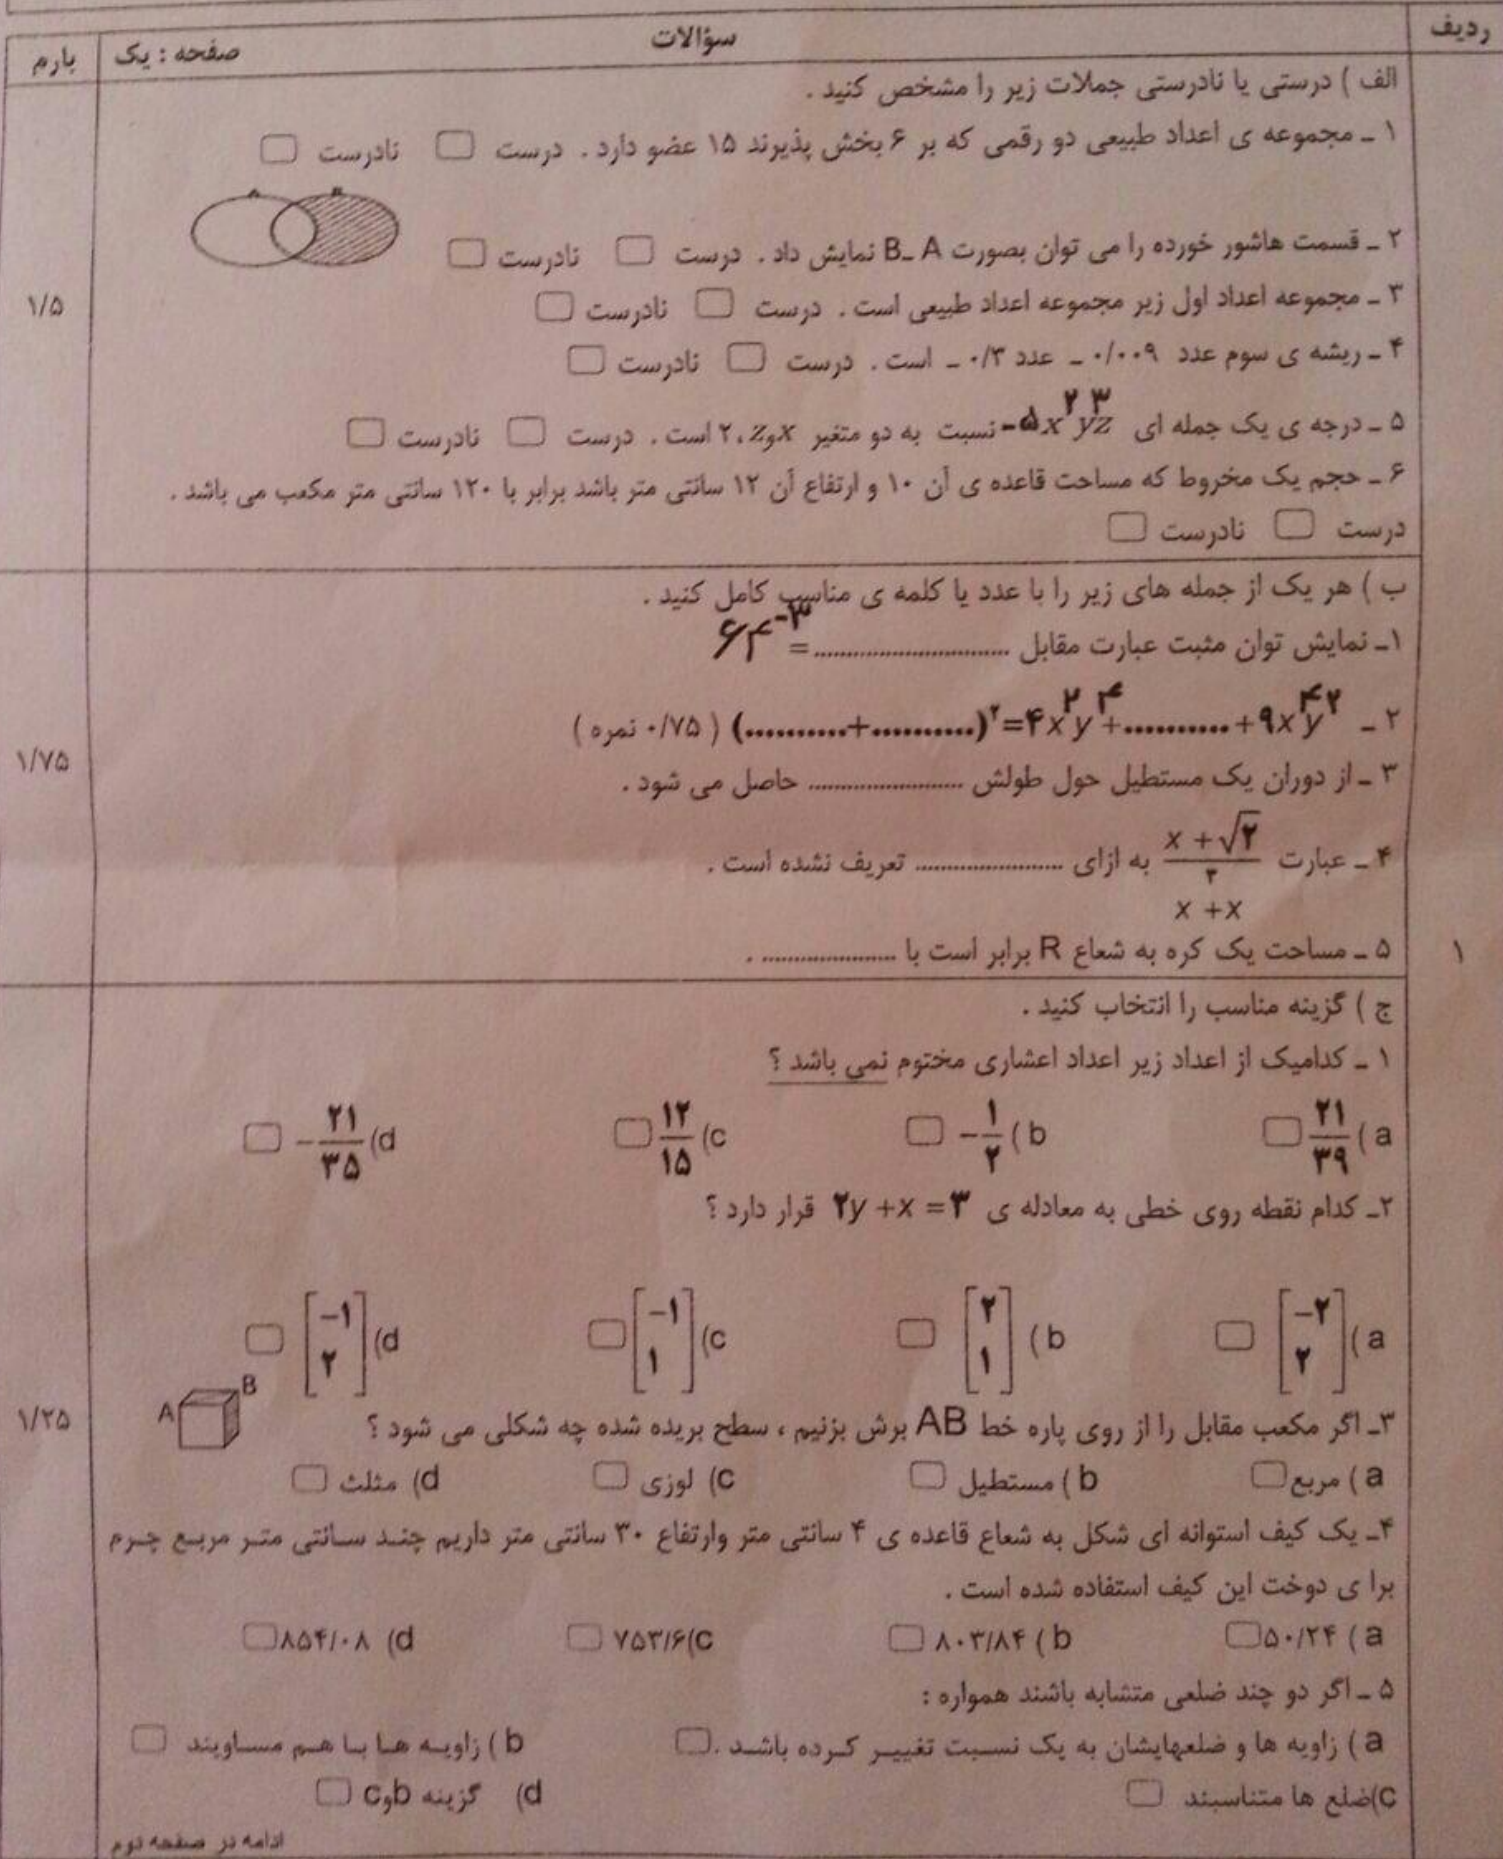 ردیف سؤالات صفحه : یک بارم
الف ) درستی یا نادرستی جملات زیر را مشخص کنید .
۱ ـ مجموعه ی اعداد طبیعی دو رقمی که بر ۶ بخش پذیرند ۱۵ عضو دارد . درست نادرست
A B
۲ ـ قسمت هاشور خورده را می توان بصورت B_ A نمایش داد . درست نادرست
۳ ـ مجموعه اعداد اول زیر مجموعه اعداد طبیعی است . درست نادرست
۱/۵
۴ ـ ریشه ی سوم عدد ۰/۰۰۹ ـ عدد ۰/۳ ـ است . درست نادرست
۵ ـ درجه ی یک جمله ای -۵x²yz³ نسبت به دو متغیر xوz ،۲ است . درست نادرست
۶ ـ حجم یک مخروط که مساحت قاعده ی آن ۱۰ و ارتفاع آن ۱۲ سانتی متر باشد برابر با ۱۲۰ سانتی متر مکعب می باشد .
درست نادرست
ب ) هر یک از جمله های زیر را با عدد یا کلمه ی مناسب کامل کنید .
۱ـ نمایش توان مثبت عبارت مقابل ............................= ۶۴⁻³
۲ ـ (..........+..........)²=۴x²y⁴+..........+۹x⁴y² ( ۰/۷۵ نمره )
۱/۷۵
۳ ـ از دوران یک مستطیل حول طولش ...................... حاصل می شود .
۴ ـ عبارت (x+√۲)/(x³+x) به ازای ..................... تعریف نشده است .
۵ ـ مساحت یک کره به شعاع R برابر است با .................... .
۱
ج ) گزینه مناسب را انتخاب کنید .
۱ ـ کدامیک از اعداد زیر اعداد اعشاری مختوم نمی باشد ؟
a ) ۲۱/۳۹ b ) -۱/۲ c) ۱۲/۱۵ d) -۲۱/۳۵
۲ـ کدام نقطه روی خطی به معادله ی ۲y +x =۳ قرار دارد ؟
a ) [-۲ ۲] b ) [۲ ۱] c) [-۱ ۱] d) [-۱ ۲]
A B
۳ـ اگر مکعب مقابل را از روی پاره خط AB برش بزنیم ، سطح بریده شده چه شکلی می شود ؟
۱/۲۵
a ) مربع b ) مستطیل c) لوزی d) مثلث
۴ـ یک کیف استوانه ای شکل به شعاع قاعده ی ۴ سانتی متر وارتفاع ۳۰ سانتی متر داریم چند سانتی متر مربع چرم
برا ی دوخت این کیف استفاده شده است .
a ) ۵۰/۲۴ b ) ۸۰۳/۸۴ c)۷۵۳/۶ d) ۸۵۴/۰۸
۵ ـ اگر دو چند ضلعی متشابه باشند همواره :
a ) زاویه ها و ضلعهایشان به یک نسبت تغییر کرده باشد . b ) زاویه ها با هم مساویند
c)ضلع ها متناسبند d) گزینه bوc
ادامه در صفحه دوم